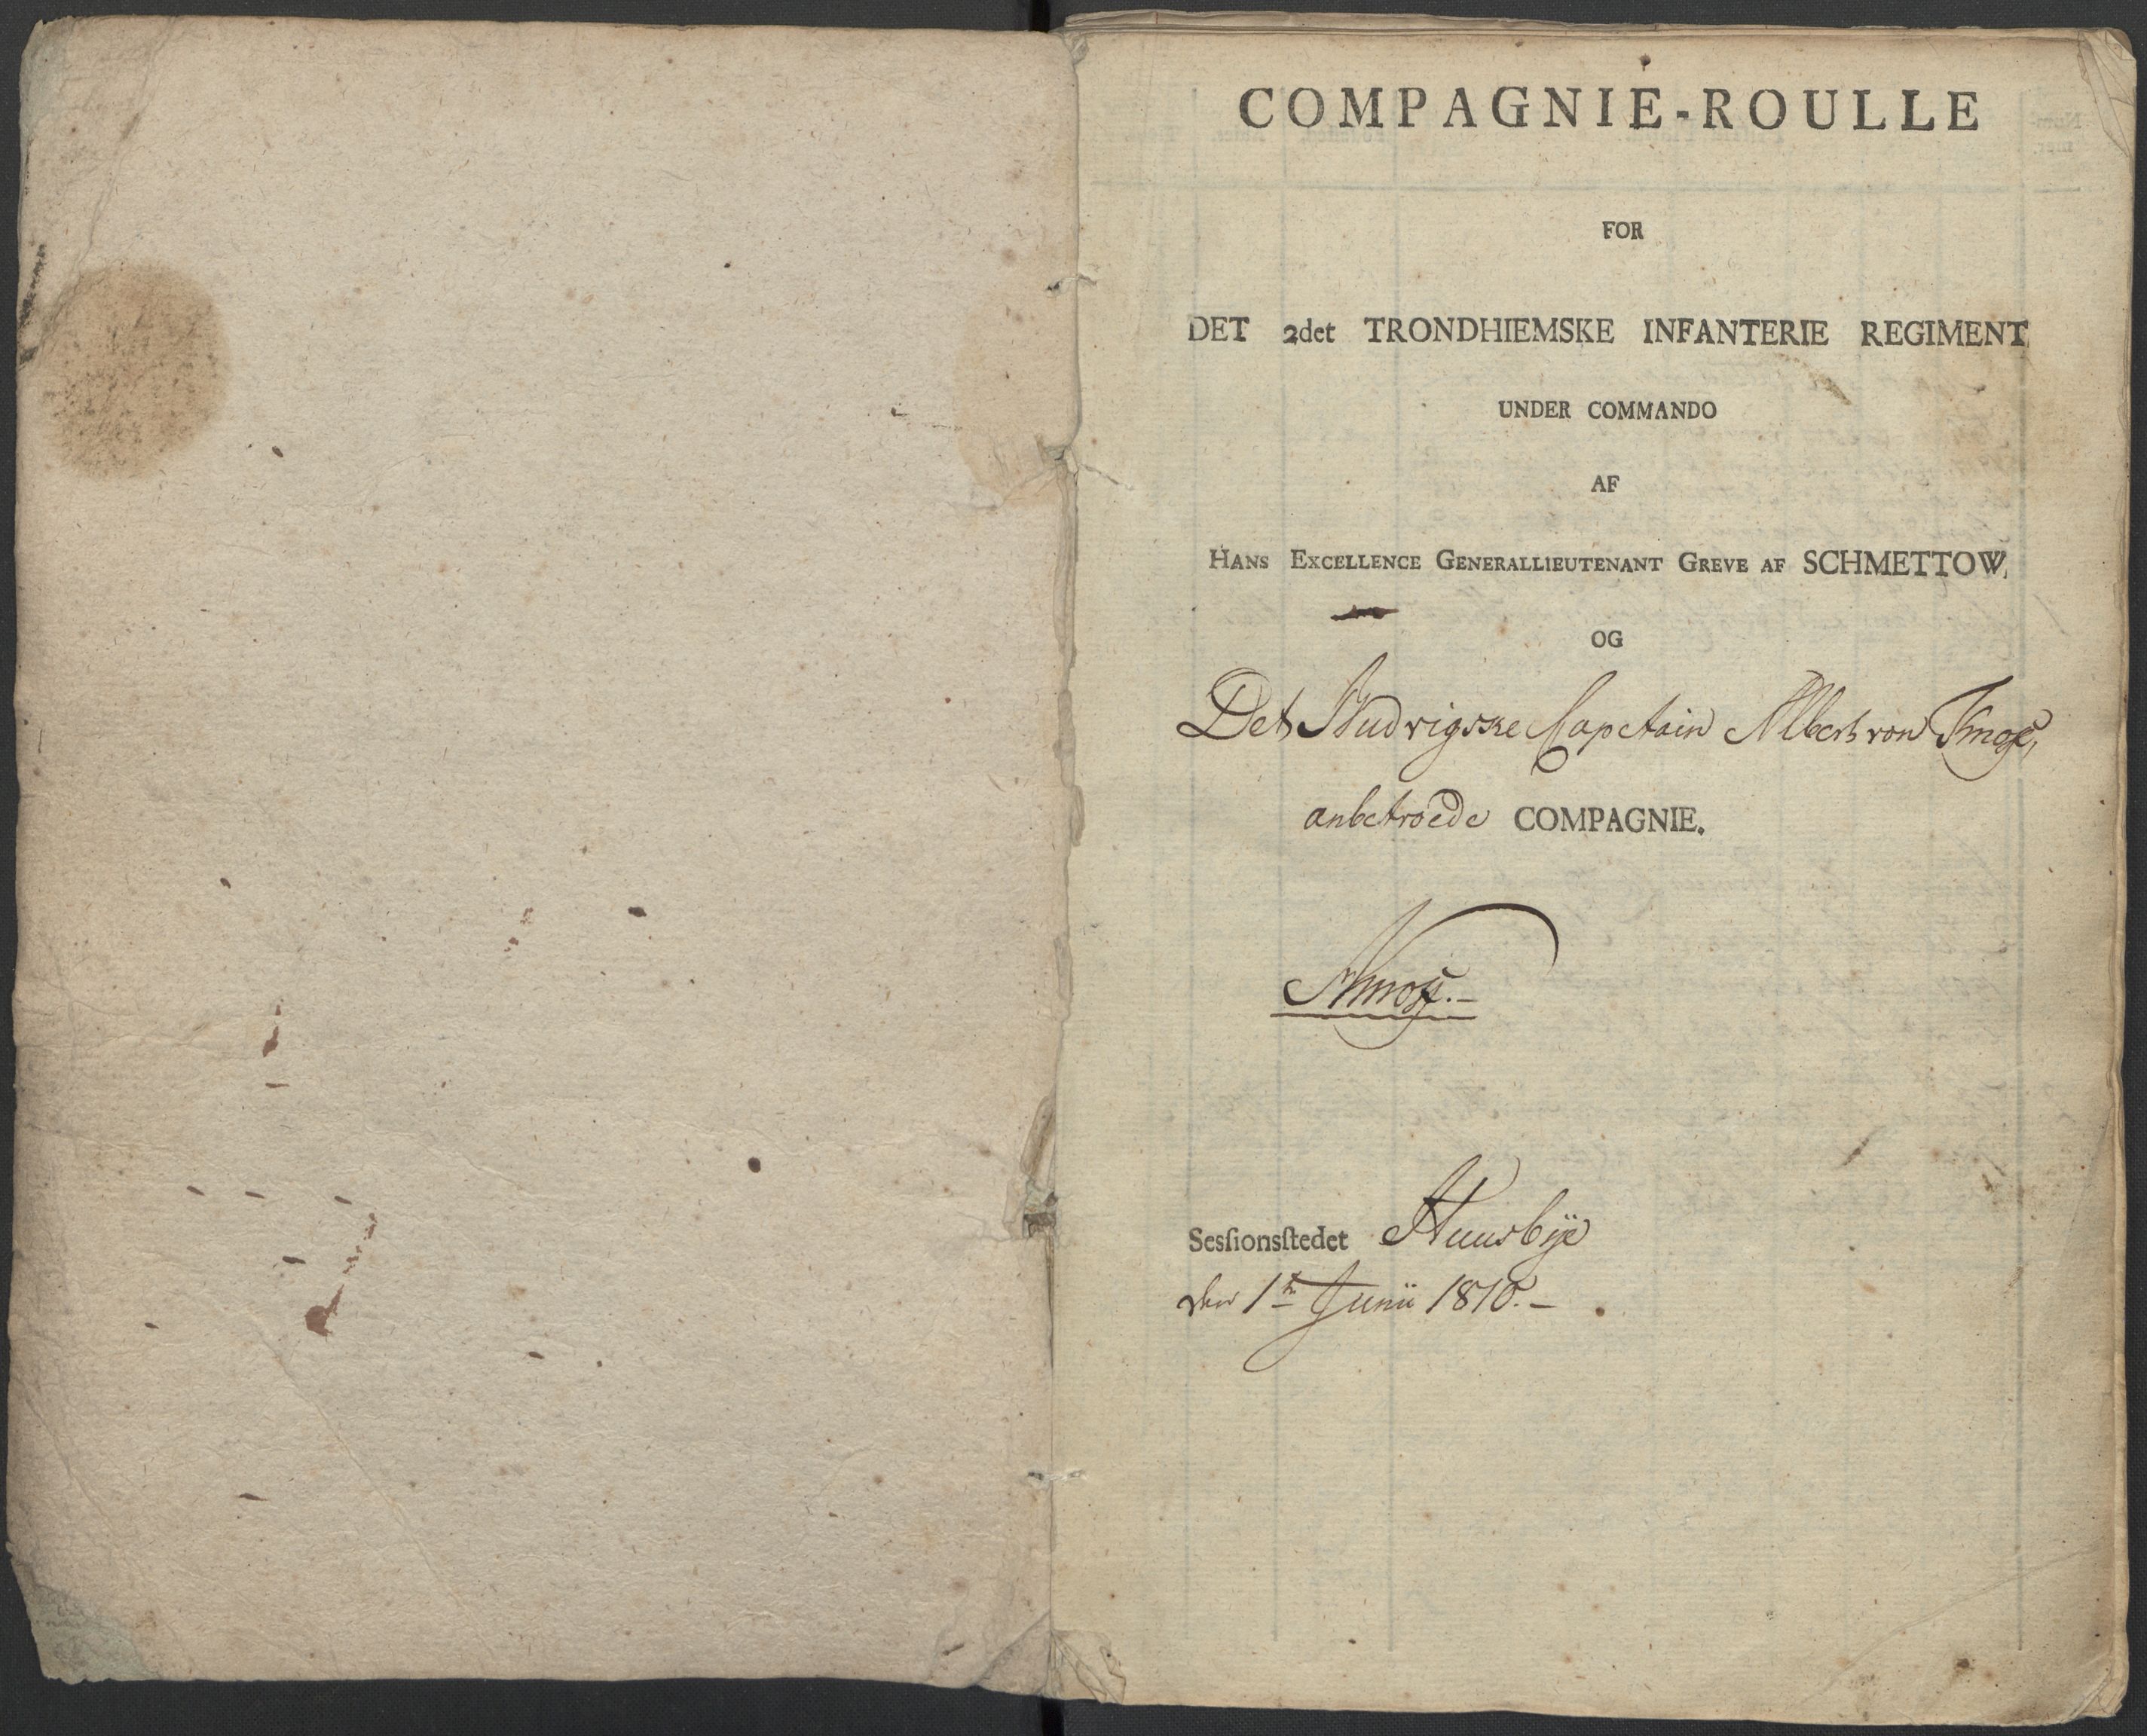 COMPAGNIE-ROULLE
FOR
DET 2det TRONDHIEMSKE INFANTERIE REGIMENT
UNDER COMMANDO
AF
HANS EXCELLENCE GENERALLIEUTENANT GREVE AF SCHMETTOW,
OG
Det Capitain Albert von
anbetroede COMPAGNIE.
Sesſionsſtedet Huusbye
den 1te Junii 1810.-